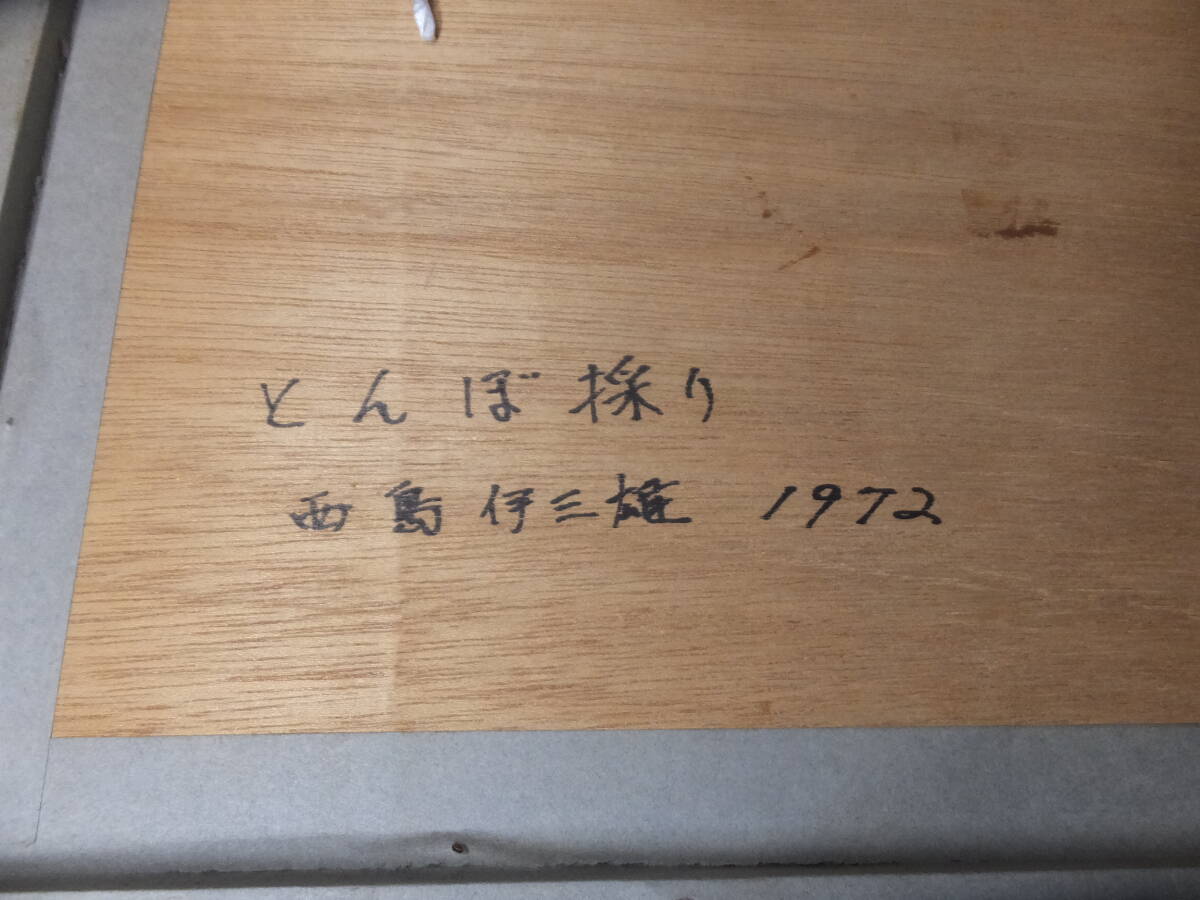 とんぼ採り
西島伊三雄 1972